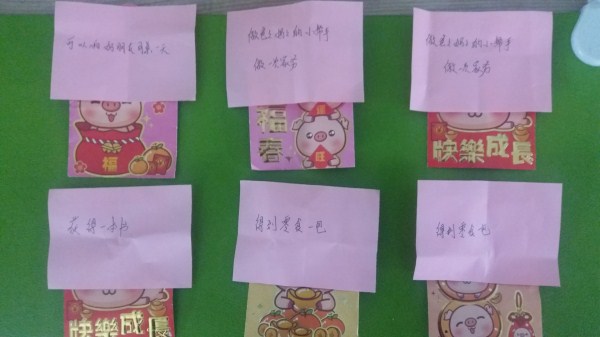 做爸爸妈妈的小帮手
做一次家务
做爸爸妈妈的小帮手
做一次家务
福
福
春
旺
快樂成長
获得一本书
得到零食一包
得到零食一包
快樂成長